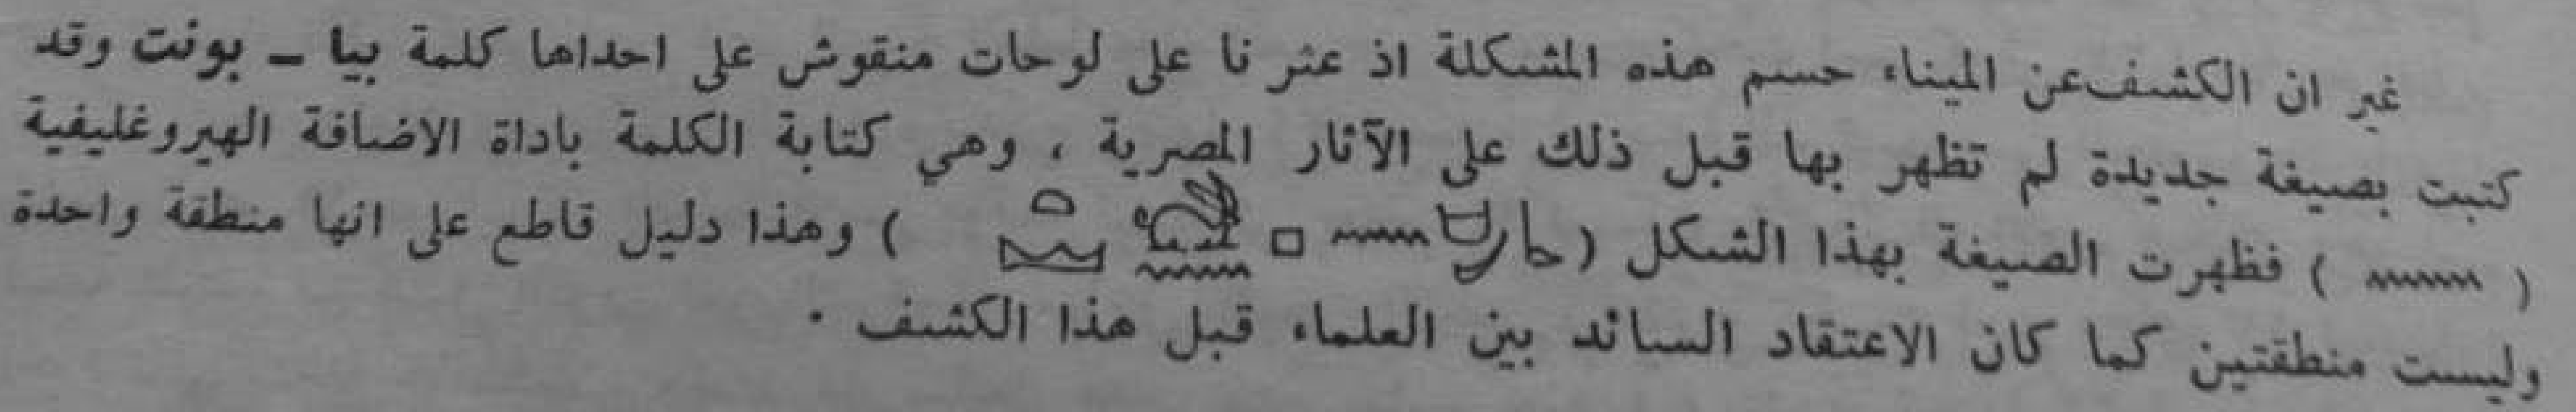 غير ان الكشف عن الميناء حسم هذه المشكلة اذ عثر نا على لوحات منقوش على احداها كلمة بيا ـ بونت وقد
كتبت بصيغة جديدة لم تظهر بها قبل ذلك على الآثار المصرية ، وهي كتابة الكلمة باداة الاضافة الهيروغليفية
( 𓈖 ) فظهرت الصيغة بهذا الشكل ( ) وهذا دليل قاطع على انها منطقة واحدة
وليست منطقتين كما كان الاعتقاد السائد بين العلماء قبل هذا الكشف ٠